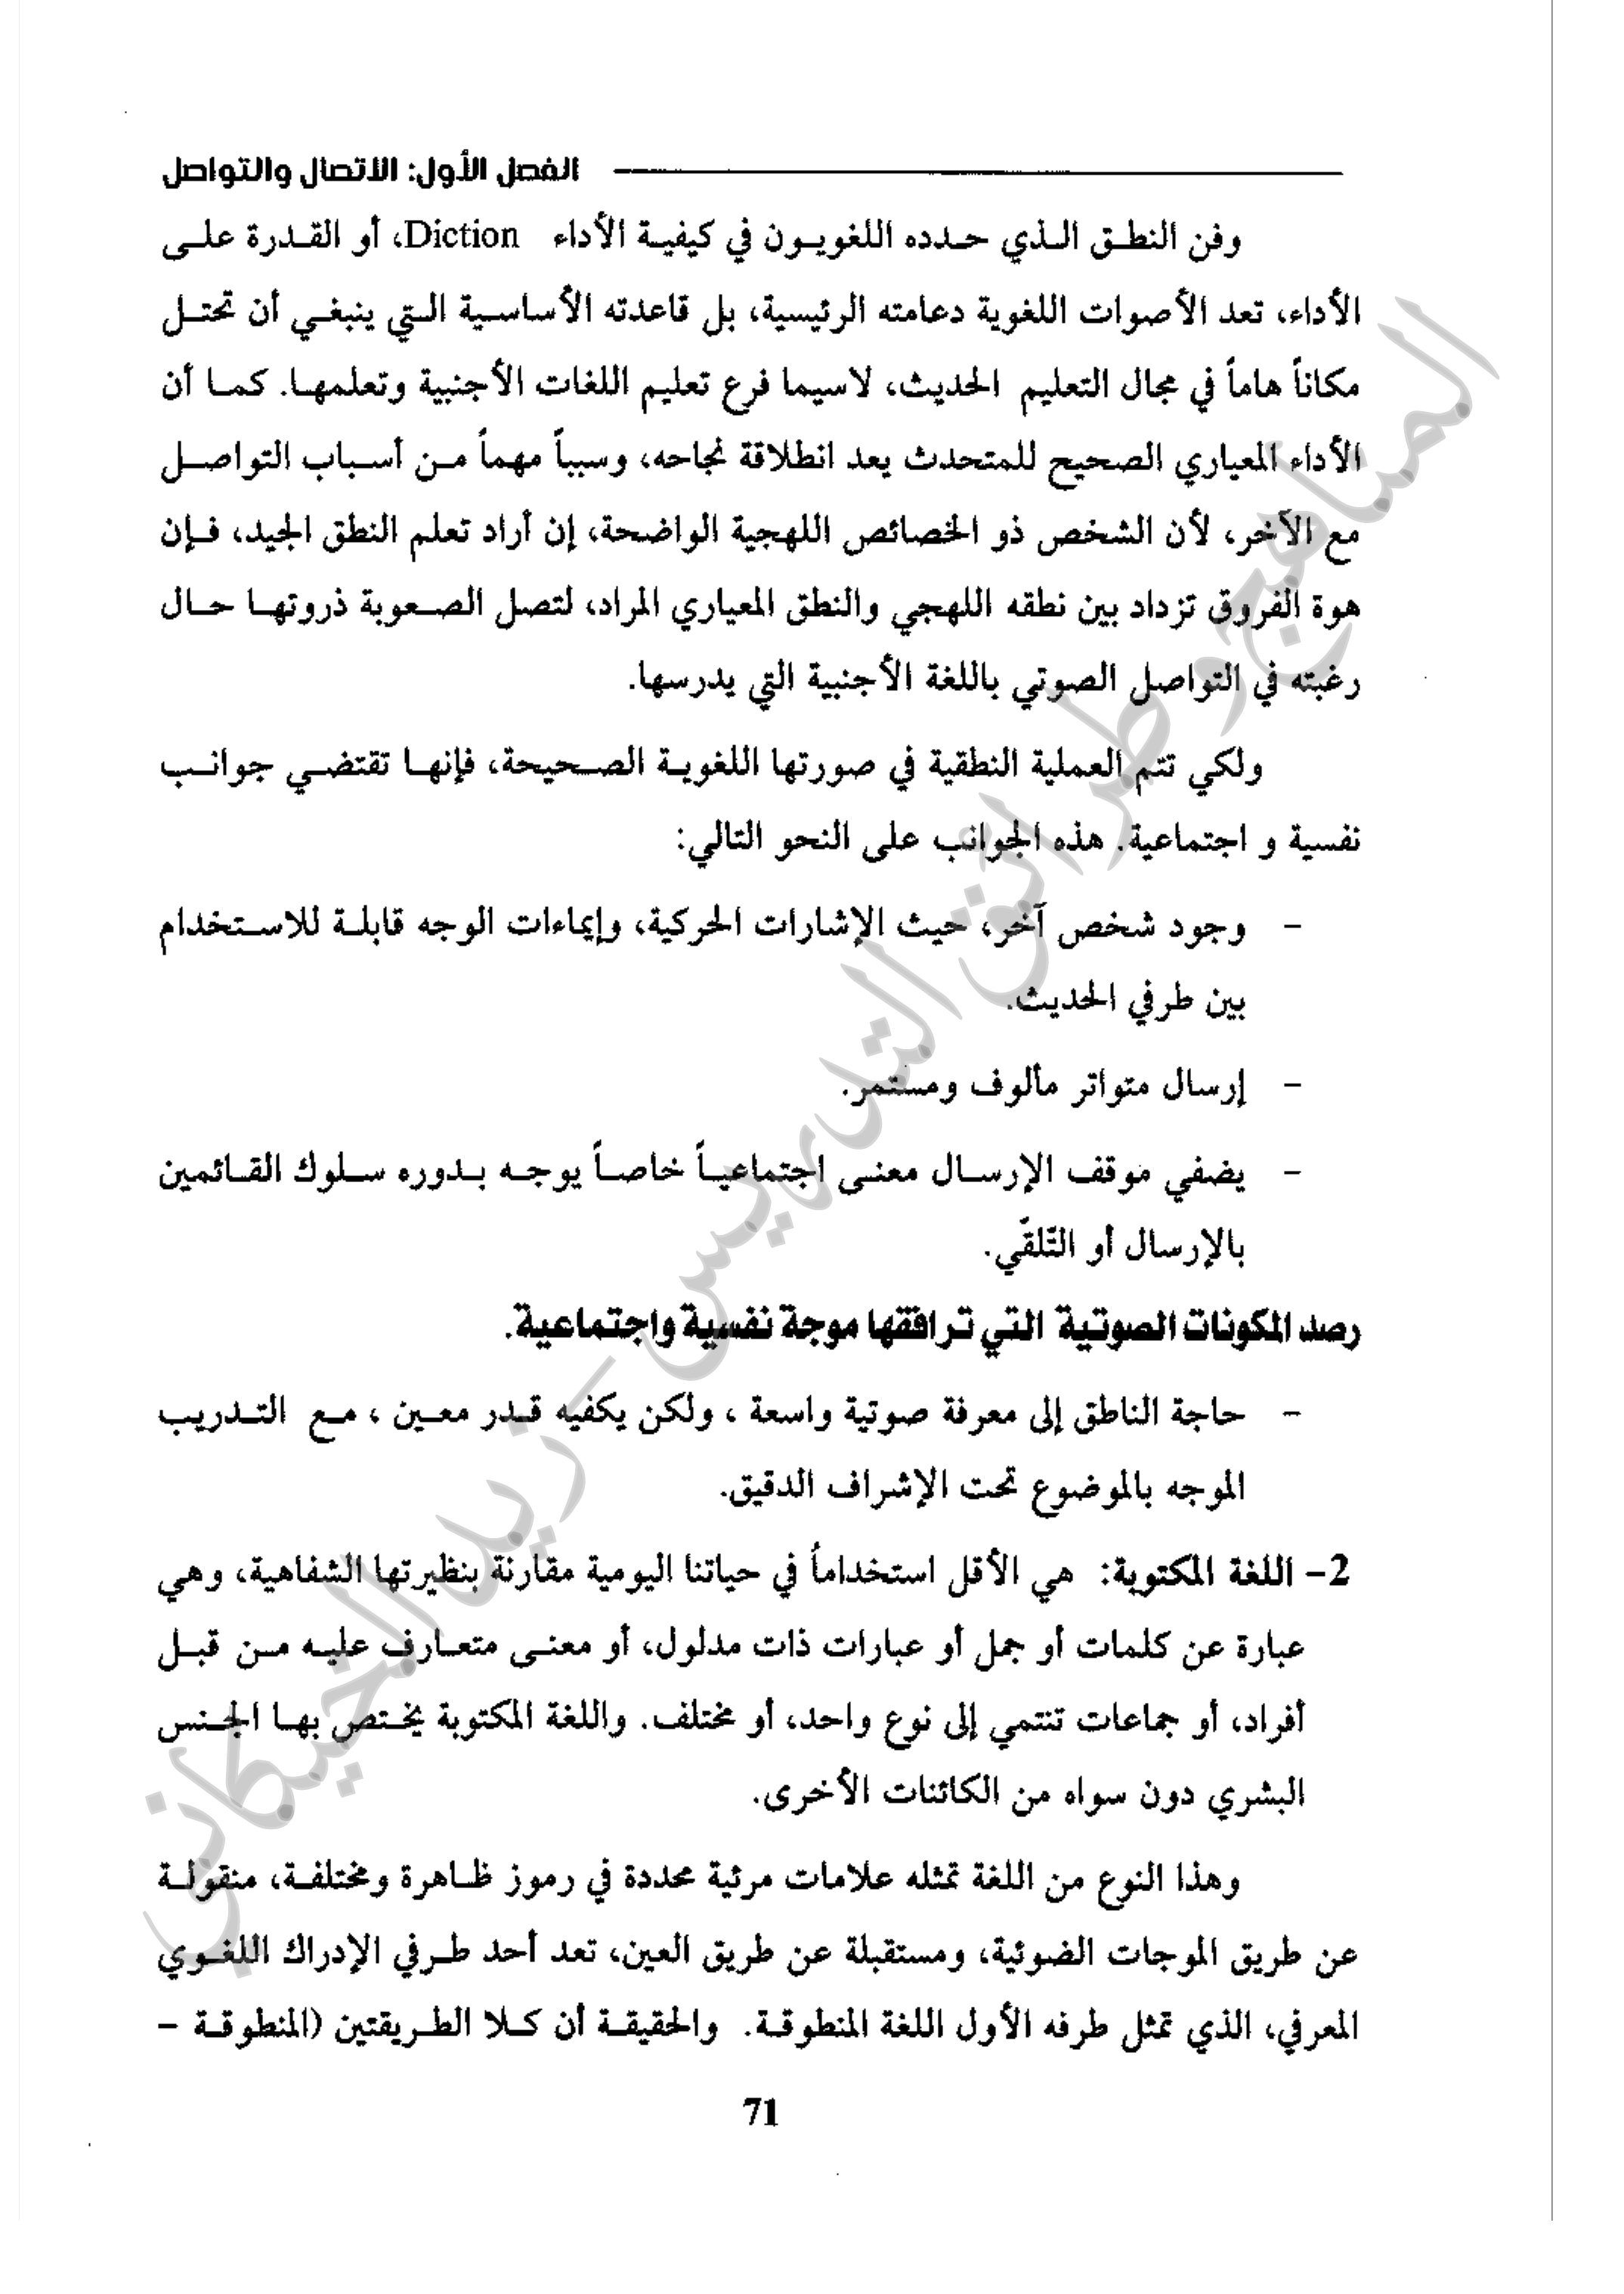 الفصل الأول: الاتصال والتواصل
وفن النطق الذي حدده اللغويون في كيفية الأداء Diction، أو القدرة على
الأداء، تعد الأصوات اللغوية دعامته الرئيسية، بل قاعدته الأساسية التي ينبغي أن تحتل
مكاناً هاماً في مجال التعليم الحديث، لاسيما فرع تعليم اللغات الأجنبية وتعلمها. كما أن
الأداء المعياري الصحيح للمتحدث يعد انطلاقة نجاحه، وسبباً مهماً من أسباب التواصل
مع الآخر، لأن الشخص ذو الخصائص اللهجية الواضحة، إن أراد تعلم النطق الجيد، فإن
هوة الفروق تزداد بين نطقه اللهجي والنطق المعياري المراد، لتصل الصعوبة ذروتها حال
رغبته في التواصل الصوتي باللغة الأجنبية التي يدرسها.
ولكي تتم العملية النطقية في صورتها اللغوية الصحيحة، فإنها تقتضي جوانب
نفسية و اجتماعية. هذه الجوانب على النحو التالي:
- وجود شخص آخر، حيث الإشارات الحركية، وإيماءات الوجه قابلة للاستخدام
بين طرفي الحديث.
- إرسال متواتر مألوف ومستمر.
- يضفي موقف الإرسال معنى اجتماعياً خاصاً يوجه بدوره سلوك القائمين
بالإرسال أو التّلقّي.
رصد المكونات الصوتية التي ترافقها موجة نفسية واجتماعية.
- حاجة الناطق إلى معرفة صوتية واسعة ، ولكن يكفيه قدر معين ، مع التدريب
الموجه بالموضوع تحت الإشراف الدقيق.
2- اللغة المكتوبة: هي الأقل استخداماً في حياتنا اليومية مقارنة بنظيرتها الشفاهية، وهي
عبارة عن كلمات أو جمل أو عبارات ذات مدلول، أو معنى متعارف عليه من قبل
أفراد، أو جماعات تنتمي إلى نوع واحد، أو مختلف. واللغة المكتوبة يختص بها الجنس
البشري دون سواه من الكائنات الأخرى.
وهذا النوع من اللغة تمثله علامات مرئية محددة في رموز ظاهرة ومختلفة، منقولة
عن طريق الموجات الضوئية، ومستقبلة عن طريق العين، تعد أحد طرفي الإدراك اللغوي
المعرفي، الذي تمثل طرفه الأول اللغة المنطوقة. والحقيقة أن كلا الطريقتين (المنطوقة -
71
المناهج وطرائق التدريس - زيد الخيكاني